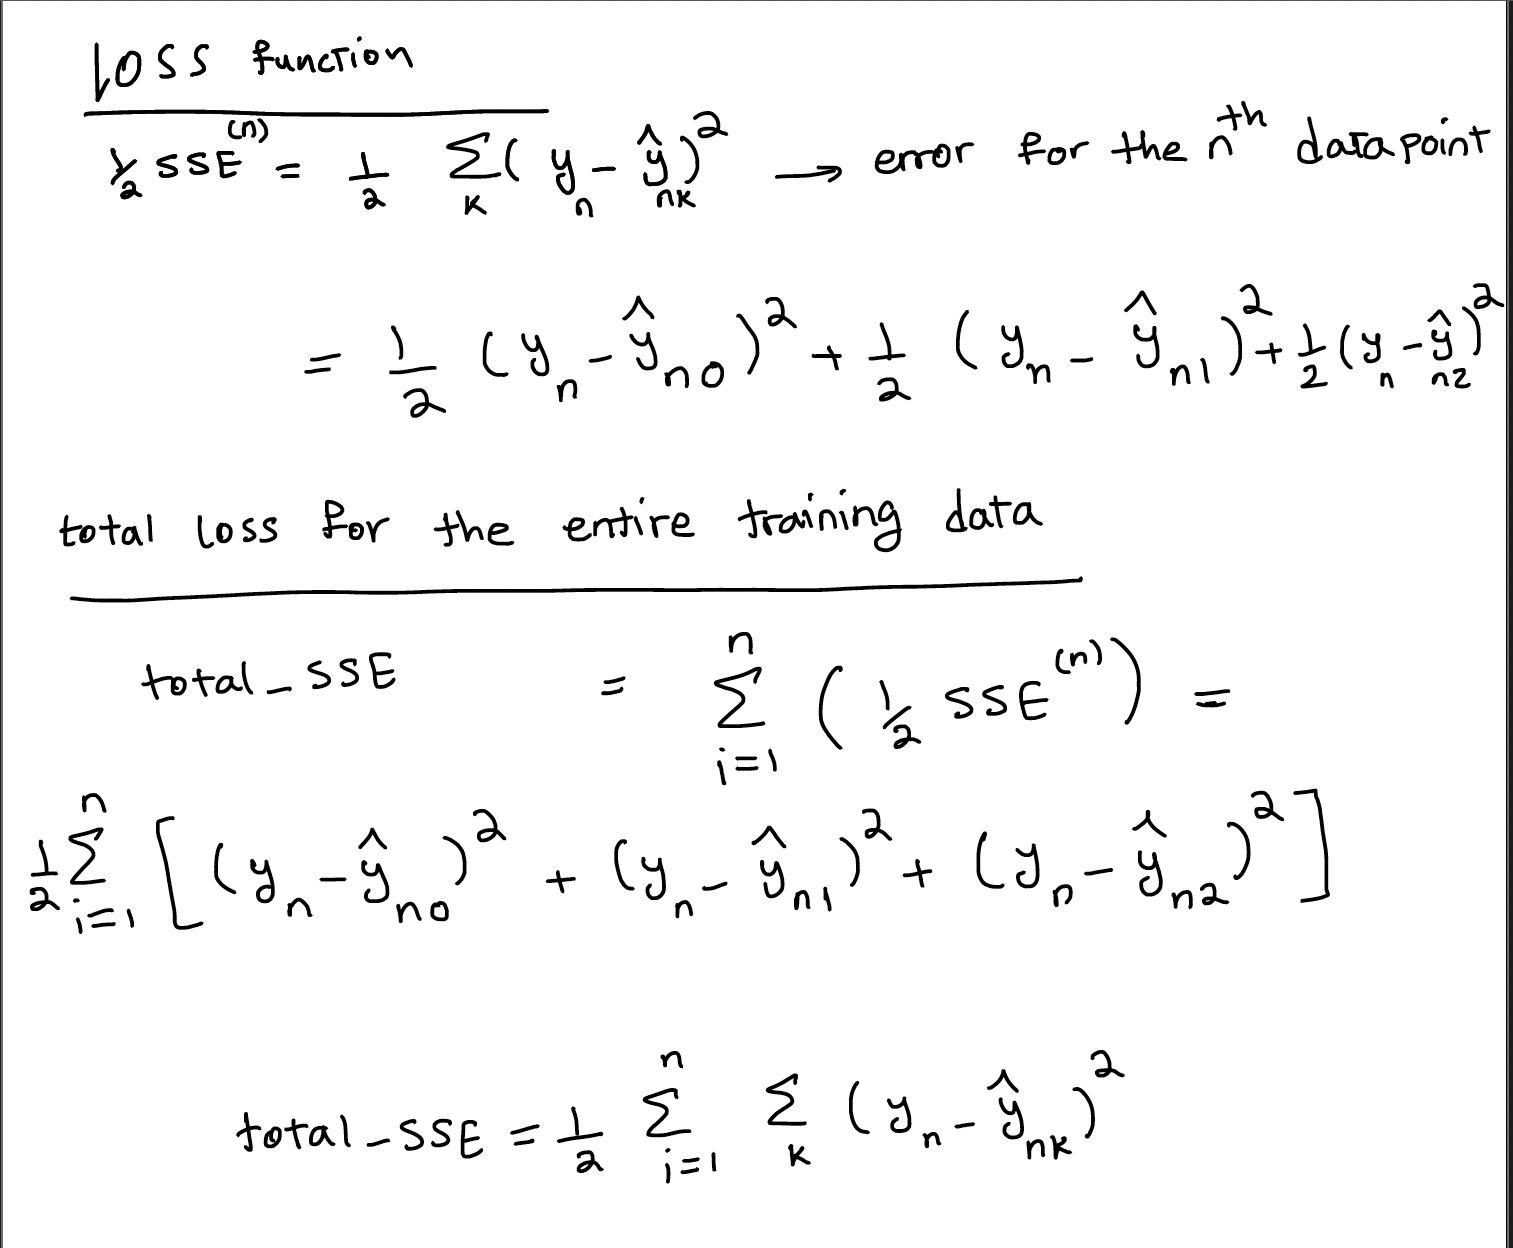 Loss function
½ SSE⁽ⁿ⁾ = ½ Σₖ (yₙ - ŷₙₖ)² → error for the nᵗʰ datapoint
= ½ (yₙ - ŷₙ₀)² + ½ (yₙ - ŷₙ₁)² + ½ (yₙ - ŷₙ₂)²
total loss for the entire training data
total_SSE = Σᵢ₌₁ⁿ (½ SSE⁽ⁿ⁾) =
½ Σᵢ₌₁ⁿ [(yₙ - ŷₙ₀)² + (yₙ - ŷₙ₁)² + (yₙ - ŷₙ₂)²]
total_SSE = ½ Σᵢ₌₁ⁿ Σₖ (yₙ - ŷₙₖ)²